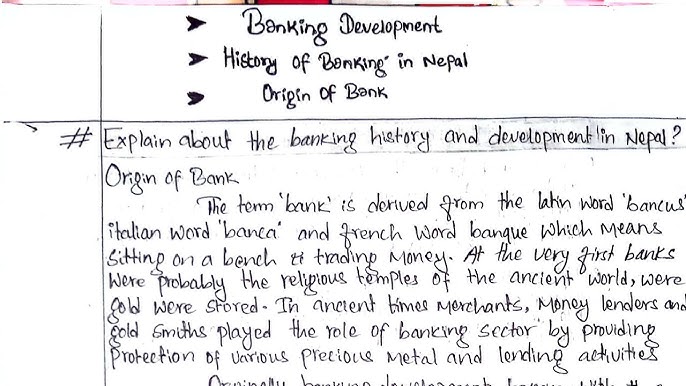 ➤ Banking Development
➤ History of Banking in Nepal
➤ Origin of Bank
# Explain about the banking history and development in Nepal?
Origin of Bank
The term 'bank' is derived from the latin word 'bancus'
italian word 'banca' and french word banque which means
sitting on a bench & trading money. At the very first banks
were probably the religious temples of the ancient world, were
gold were stored. In ancient times merchants, money lenders and
gold smiths played the role of banking sector by providing
protection of various precious metal and lending activities